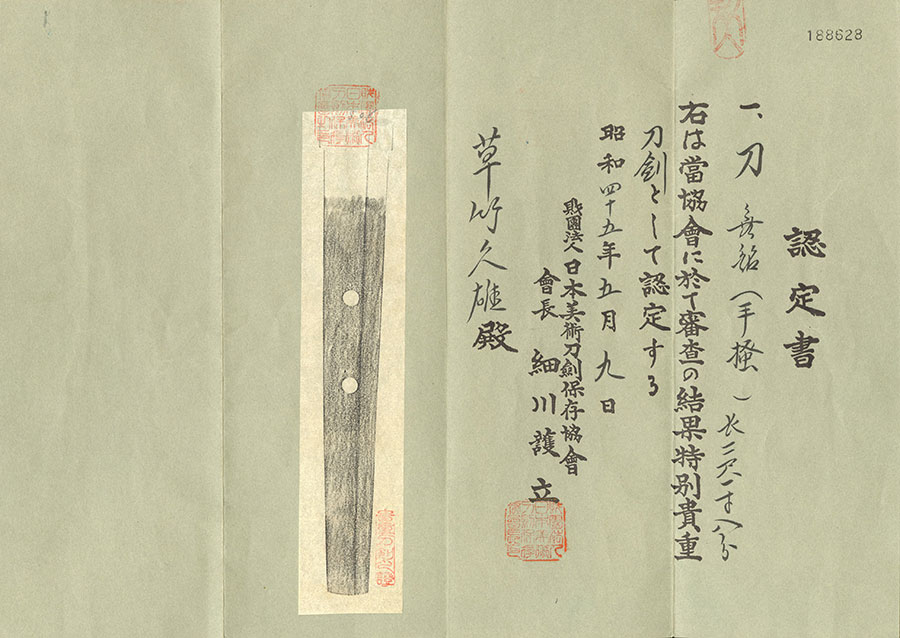 188628
認定書
一、刀 無銘(手掻)長二尺一寸八分
右は當協會に於て審査の結果特別貴重
刀劍として認定する
昭和四十五年五月九日
財團法人日本美術刀劍保存協會
會長 細川護立
草竹久雄殿